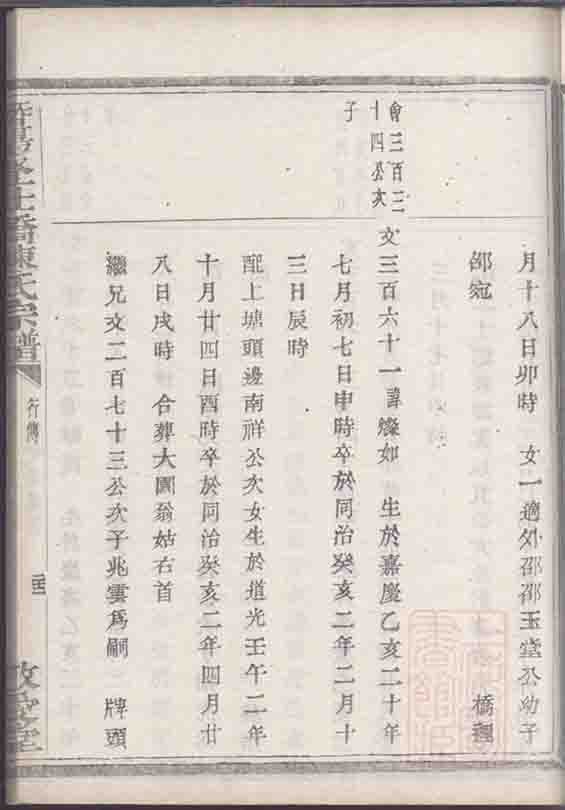 月十八日卯時　女一適外邵邵玉堂公幼子　橋裡
邵宛
會三百三
十四公次
子
文三百六十一諱燦如　生於嘉慶乙亥二十年
七月初七日申時卒於同治癸亥二年二月十
三日辰時
配上塘頭邊南祥公次女生於道光壬午二年
十月廿四日酉時卒於同治癸亥二年四月廿
八日戌時　合葬大園翁姑右首
繼兄文二百七十三公次子兆雲爲嗣　牌頭
橋陳氏宗譜
行傳